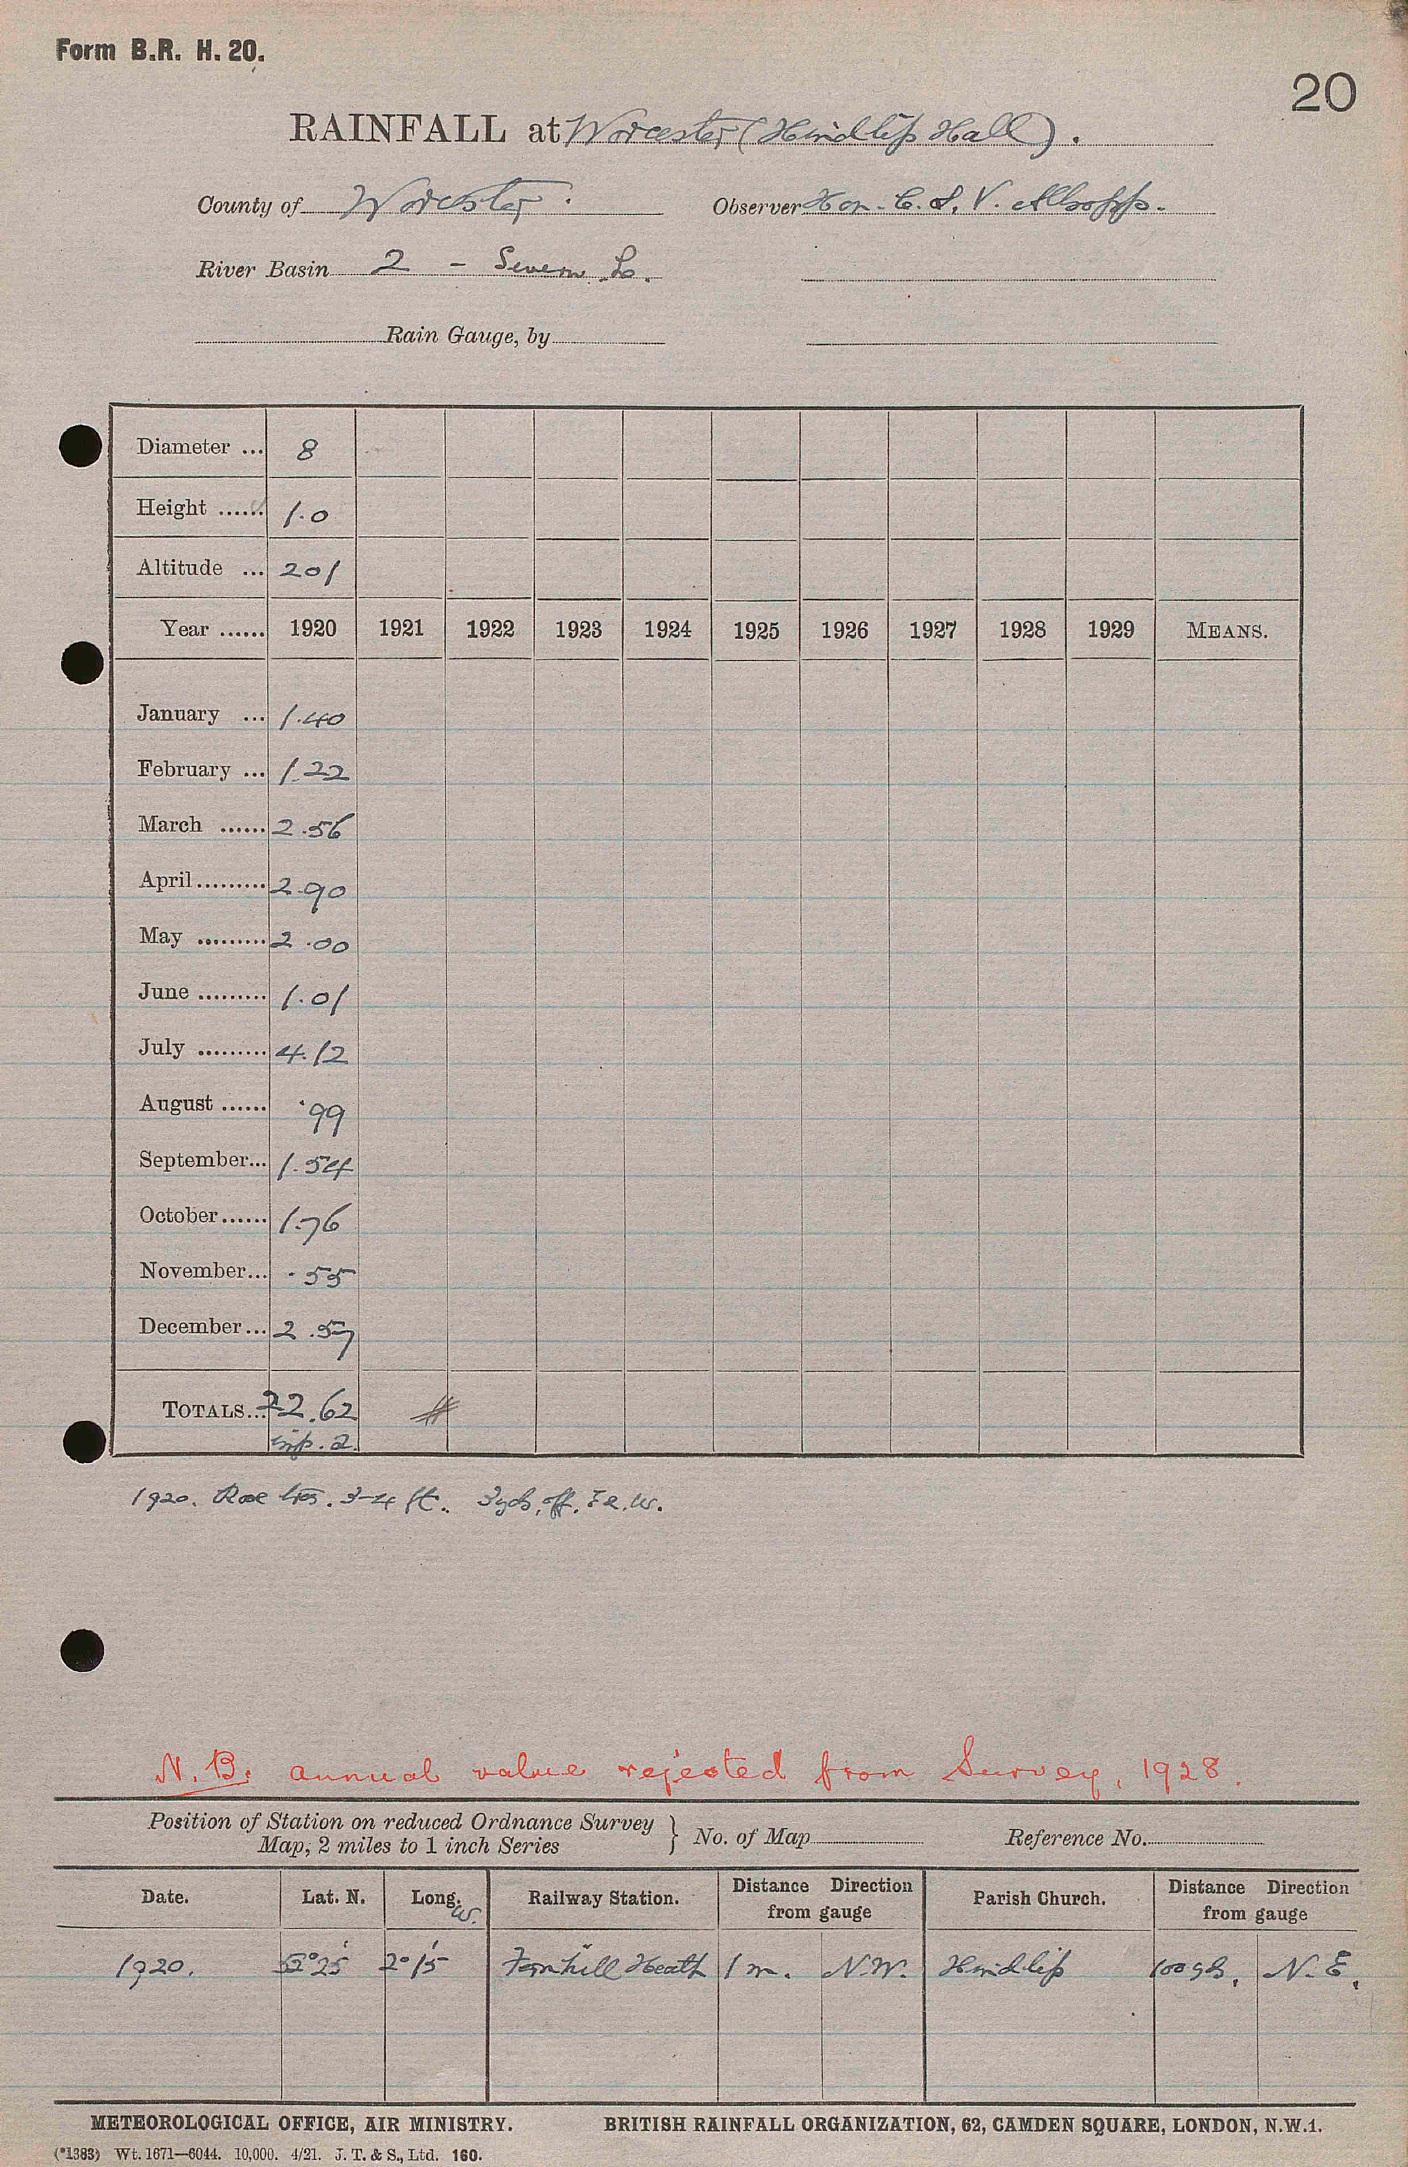 Form B.R. H. 20.
20
RAINFALL at Worcester (Hindlip Hall).
County of Worcester. Observer Hon. C. S. V. Allsopp.
River Basin 2 - Severn L.
Rain Gauge, by
Diameter ... 8
Height ...... 1.0
Altitude ... 201
Year ...... 1920 1921 1922 1923 1924 1925 1926 1927 1928 1929 MEANS.
January ... 1.40
February ... 1.22
March ...... 2.56
April ......... 2.90
May ......... 2.00
June ......... 1.01
July ......... 4.12
August ...... .99
September... 1.54
October...... 1.76
November... .55
December... 2.57
TOTALS... 22.62
1920. Rose 3-4 ft. 3 yds. off. E & W.
N.B. annual value rejected from Survey, 1928.
Position of Station on reduced Ordnance Survey
Map, 2 miles to 1 inch Series } No. of Map Reference No.
Date. Lat. N. Long. W. Railway Station. Distance Direction from gauge Parish Church. Distance Direction from gauge
1920. 52°25' 2°15' Fernhill Heath 1 m. N.W. Hindlip 100 yds. N.E.
METEOROLOGICAL OFFICE, AIR MINISTRY. BRITISH RAINFALL ORGANIZATION, 62, CAMDEN SQUARE, LONDON, N.W.1.
(*1383) Wt. 1671—6044. 10,000. 4/21. J. T. & S., Ltd. 160.